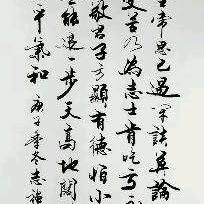 常思己過閑談莫論
受苦乃為志士肯吃虧
敬君子方顯有德怕小
能退一步天高地闊
平氣和 庚子季冬志